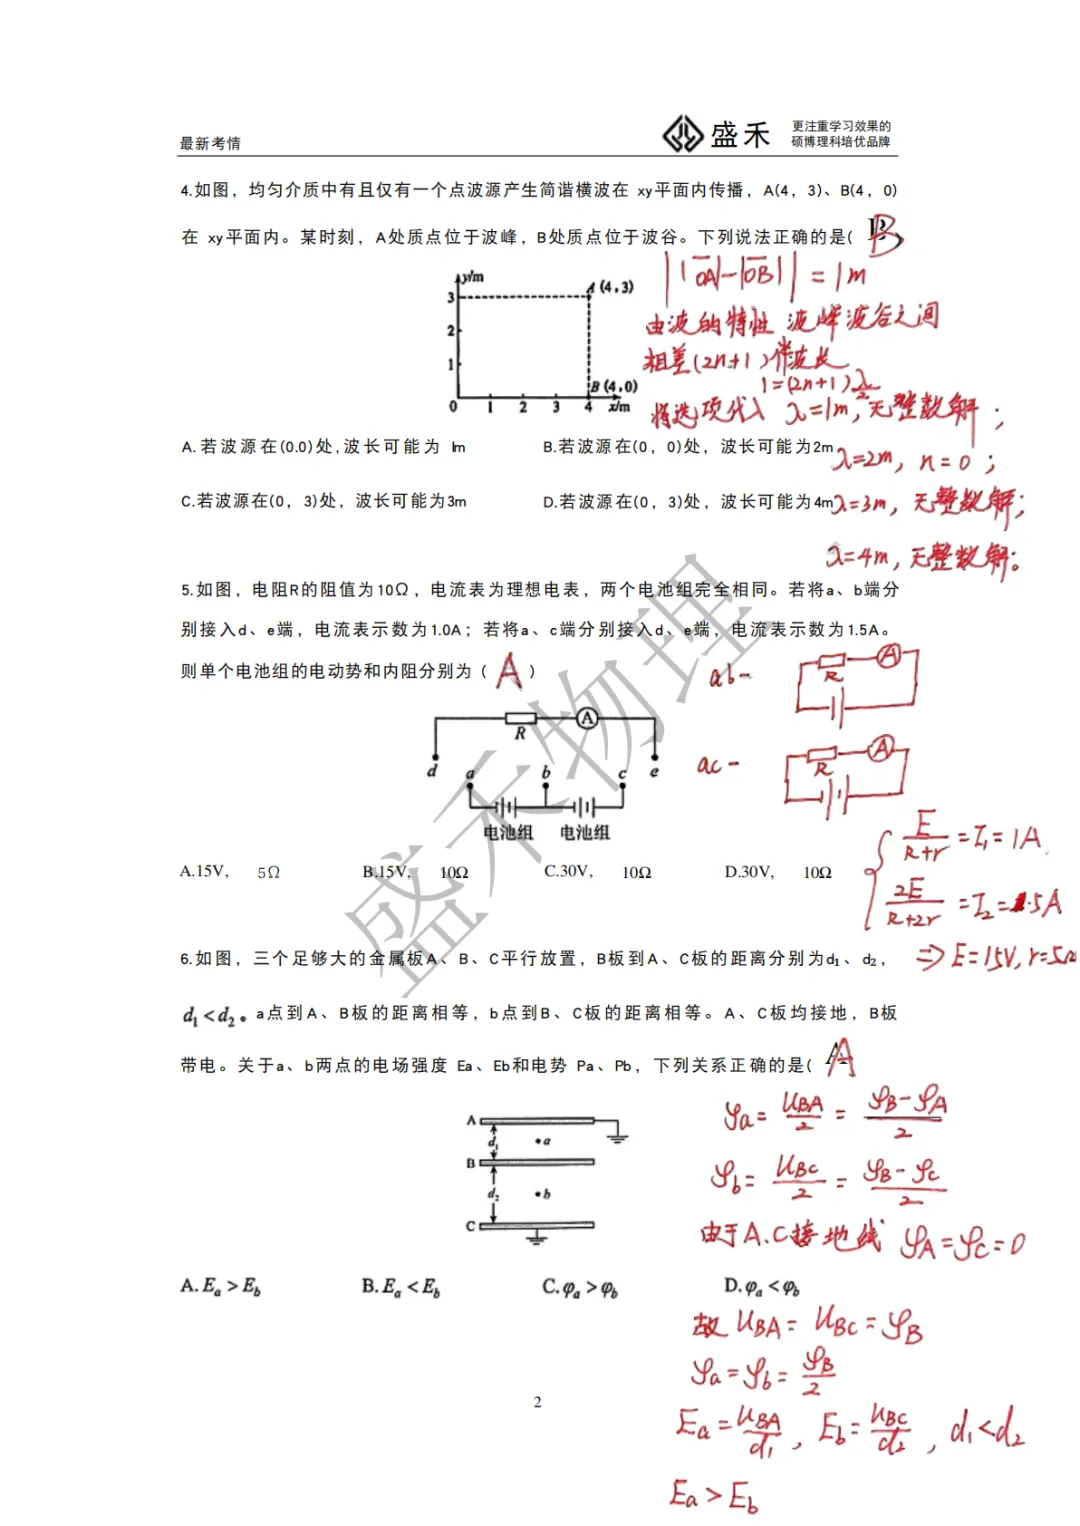 最新考情
盛禾
更注重学习效果的
硕博理科培优品牌
4.如图，均匀介质中有且仅有一个点波源产生简谐横波在 xy平面内传播，A(4，3)、B(4，0)
在 xy平面内。某时刻，A处质点位于波峰，B处质点位于波谷。下列说法正确的是( B
||OA|-|OB|| = 1m
由波的特性 波峰波谷之间
相差(2n+1)半波长
1=(2n+1)λ/2
将选项代入 λ=1m，无整数解；
y/m
3
2
1
0 1 2 3 4 x/m
A (4,3)
B (4,0)
A.若波源在(0.0)处,波长可能为 lm
B.若波源在(0，0)处，波长可能为2m
λ=2m，n=0；
C.若波源在(0，3)处，波长可能为3m
D.若波源在(0，3)处，波长可能为4m
λ=3m，无整数解；
λ=4m，无整数解。
5.如图，电阻R的阻值为10Ω，电流表为理想电表，两个电池组完全相同。若将a、b端分
别接入d、e端，电流表示数为1.0A；若将a、c端分别接入d、e端，电流表示数为1.5A。
则单个电池组的电动势和内阻分别为（ A ）
ab-
R
A
ac-
R
A
R
A
d a b c e
电池组 电池组
E/(R+r) = I₁ = 1A
2E/(R+2r) = I₂ = 1.5A
⇒ E=15V, r=5Ω
A.15V， 5Ω
B.15V， 10Ω
C.30V， 10Ω
D.30V， 10Ω
盛禾物理
6.如图，三个足够大的金属板A、B、C平行放置，B板到A、C板的距离分别为d₁、d₂，
d₁<d₂。a点到A、B板的距离相等，b点到B、C板的距离相等。A、C板均接地，B板
带电。关于a、b两点的电场强度 Ea、Eb和电势 Pa、Pb，下列关系正确的是( A
A
d₁
a
B
d₂
b
C
φa = UBA/2 = (φB-φA)/2
φb = UBC/2 = (φB-φC)/2
由于A、C接地线 φA=φC=0
A.Ea > Eb
B.Ea < Eb
C.φa > φb
D.φa < φb
故 UBA = UBC = φB
φa=φb= φB/2
Ea = UBA/d₁， Eb = UBC/d₂， d₁<d₂
Ea > Eb
2